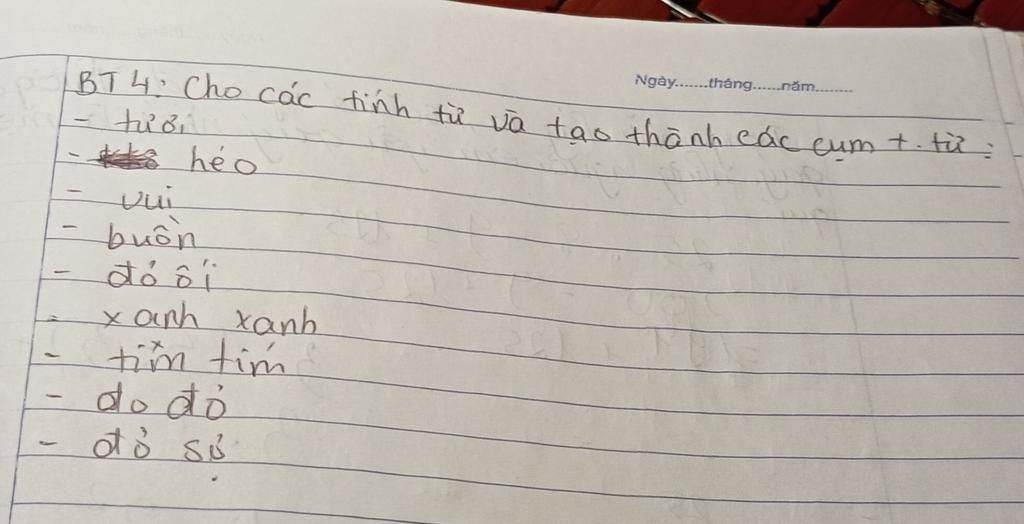 Ngày.......tháng......năm.........
BT4: Cho các tính từ và tạo thành các cụm t. từ:
- tươi
- héo
- vui
- buồn
- đỏ ối
- xanh xanh
- tim tím
- đo đỏ
- đỏ sụ